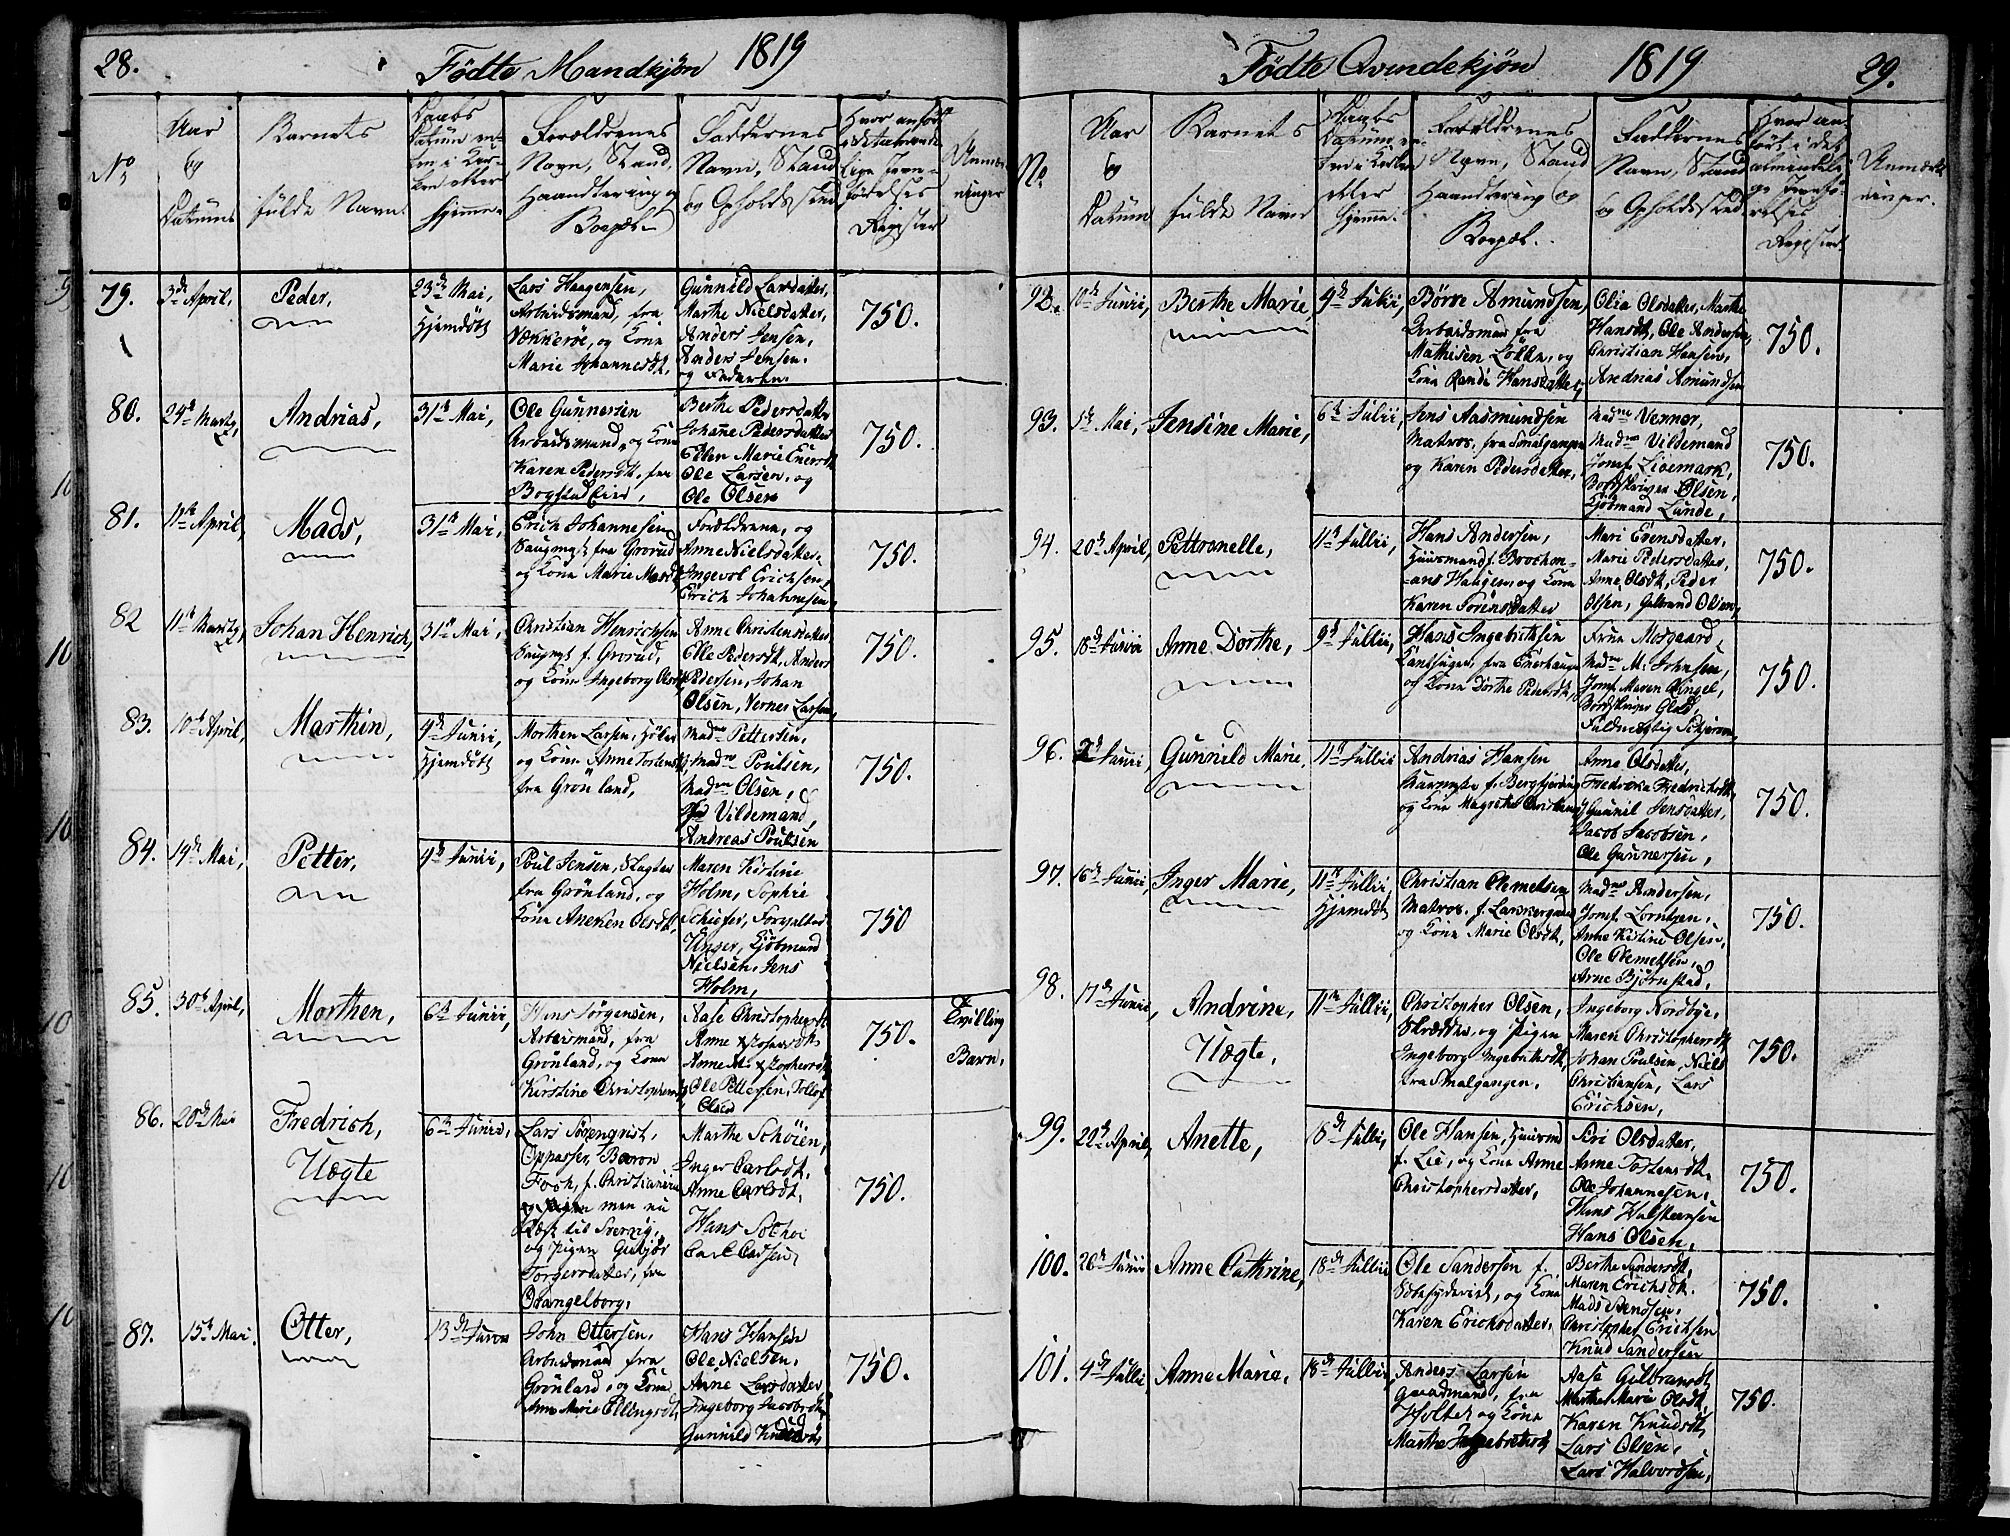 28.
Fødte Mandkjøn 1819
No
Aar
og
Datum
Barnets
fulde Navn.
Daabs
Datum en-
ten i Kir-
ken eller
hjemme.
Forældrenes
Navn, Stand,
Haandtering og
Boepæl
Faddernes
Navn, Stand
og Opholdssted
Hvor anført
i det alminde
lige Jevn-
førelses
Register
Anmærk
ninger
79.
3de April,
Peder,
23de Mai,
Hjemdöbt
Lars Haagensen,
Arbeidsmand, fra
Vækkeröe, og Kone
Marie Johannesdt,
Gunnild Larsdatter,
Marthe Nielsdatter,
Anders Jensen,
Anders Jensen.
og Faderen.
750.
80.
24de Martz,
Andrias,
31te Mai,
Ole Gunnersen
Arbeidsmand, og Kone
Karen Pedersdt, fra
Bogstad Eier,
Berthe Pedersdatter
Johanne Pedersdatter
Ellen Marie Enersdt
Ole Larsen, og
Ole Olsen
750.
81.
11te April,
Mads,
31te Mai,
Erich Johannesen
Saugmst fra Grorud
og Kone Marie Masdt,
Forældrene, og
Anne Nielsdatter,
Ingevol Erichsen,
Erich Johannesen,
750.
82
11te Martz,
Johan Henrich,
31te Mai,
Christian Henrichsen
Saugmst f. Grorud,
og Kone Ingeborg Olsdt,
Anne Christensdatter
Elle Pedersdt, Anders
Pedersen, Johan
Olsen, Verner Larsen,
750.
83.
10de April,
Marthin,
4de Junii,
Hjemdöbt
Morthen Larsen, Höker
og Kone Anne Torstensdt,
fra Grönland,
Madme Pettersen,
Madme Poulsen,
Madme Olsen,
Vildemand,
Andreas Poulsen
750.
84.
19de Mai,
Petter,
4de Junii,
Poul Jensen, Slagter
fra Grönland, og
Kone Aneken Olsdt,
Maren Kirstine
Holm, Sophie
Schiefer, Forvalter
Unger, Kjöbmand
Nielsen, Jens
Holm,
750
85.
30te April,
Morthen,
6te Junii,
Hans Jörgensen,
Arbeidsmand, fra
Grönland, og Kone
Kirstine Christophersdt
Aase Christophersdt
Anne Xstophersdt
Anne M. Xstophersdt,
Ole Pettersen, Tollef
Olsen
750.
Tvilling
Barn.
86.
20de Mai
Fredrich,
Uægte
6te Junii,
Lars Sörenqvist,
Oppasser, Baron
Foch, f. Christiania
men nu
Reist til Sverrig,
og Pigen Gubjör
Torgersdatter, fra
Oslo
Marthe Schöien,
Inger Carlsdt,
Anne Carlsdt,
Hans
Carl Carlsen,
750.
87.
15de Mai.
Otter,
13de Junii
John Ottersen,
Arbeidsmand fra
Grönland, og Kone
Ane Marie Ellingsdt,
Hans Hansen
Ole Nielsen,
Anne Larsdatter
Ingeborg Jacobsdt,
Gunnild Knudsdt,
750.
Fødte Qvindekjøn 1819
29.
No.
Aar
og
Datum
Barnets
fulde Navn
Daabs
Datum en-
ten i Kirken
eller
hjemme.
Forældrenes
Navn, Stand
Haandtering og
Boepæl.
Faddernes
Navn, Stand
og Opholdssted
Hvor an
fört i det
almindeli
ge Jevnfö
relses
Register
Anmærk
ninger.
92.
10de Junii,
Berthe Marie,
4de Julii,
Börre Amundsen,
Arbeidsmand fra
Mathisen Lökke, og
Kone Randi Hansdatter,
Olia Olsdatter, Marthe
Hansdt, Ole Andersen,
Christian Hansen,
Andrias Amundsen
750.
93.
1te Mai,
Jensine Marie,
6te Julii,
Jens Aasmundsen
Matros, fra Smalgangen
og Karen Pedersdatter,
Madme Verner,
Madme Vildemand
Jomf. Livemark,
Bordskriver Olsen,
Kjöbmand Lunde,
750.
94.
20de April,
Pettronelle,
11te Jullii,
Hans Andersen,
Huusmand f. Brochen-
ans Haugen, og Kone
Karen Törensdatter
Mari Evensdatter,
Marie Pedersdatter,
Anne Olsdt, Peder
Olsen, Gulbrand Olsen,
750.
95.
18de Junii
Anne Dorthe,
9de Jullii,
Hans Ingebrethsen
fra Enerhaugen
og Kone Dorthe Pedersdt,
Frue Mosgaard,
Madme M. Johnsen,
Jomf. Maren Ringel,
Bordskriver Glad
Fuldmægtig Schjerven,
750.
96.
2de Junii,
Gunnild Marie,
11te Jullii
Andrias Hansen
Muurmester f. Bergfjerdingen
og Kone Magrethe Christensdt
Anne Olsdatter,
Fredrecka Fredrichsdt,
Gunnil Jensdatter,
Jacob Jacobsen,
Ole Gunnersen,
750.
97.
16de Junii,
Inger Marie,
11te Jullii,
Hjemdöbt
Christian Clemetsen
Matros, f. Lakkergaden
og Kone Marie Olsdt,
Madme Andersen,
Jomf. Lorntzen,
Anne Kirstine Olsen,
Ole Clemetsen,
Arne Björnstad,
750.
98.
17de Junii,
Andrine,
Uægte,
11te Jullii,
Christopher Olsen,
Skrædder, og Pigen
Ingeborg Ingebrethsdt,
fra Smalgangen,
Ingeborg Nordbye,
Maren Christophersdt
Johan Poulsen, Niels
Christiansen, Lars
Erichsen,
750.
99.
29de April,
Anette,
18de Julli,
Ole Hansen, Huusmd
f. Lie, og Kone Anne
Christophersdatter,
Siri Olsdatter,
Anne Tostensdt,
Ole Johannesen,
Hans Halstensen
Hans Olsen,
750.
100.
26de Junii
Anne Cathrine,
18de Jullii
Ole Sandersen f.
Sæbesyderiet, og Kone
Karen Erichsdatter,
Berthe Sandersdt,
Maren Erichsdt,
Mads Svendsen,
Christopher Erichsen
Knud Sandersen
750.
101.
4de Julli
Anne Marie,
18de Jullii,
Anders Larsen
Gaardmand, fra
Holter og Kone
Marthe Ingebretsdt,
Aase Gulbransdt,
Marthe Marie Olsdt,
Karen Knudsdt,
Lars Olsen,
Lars Halvordsen,
750.